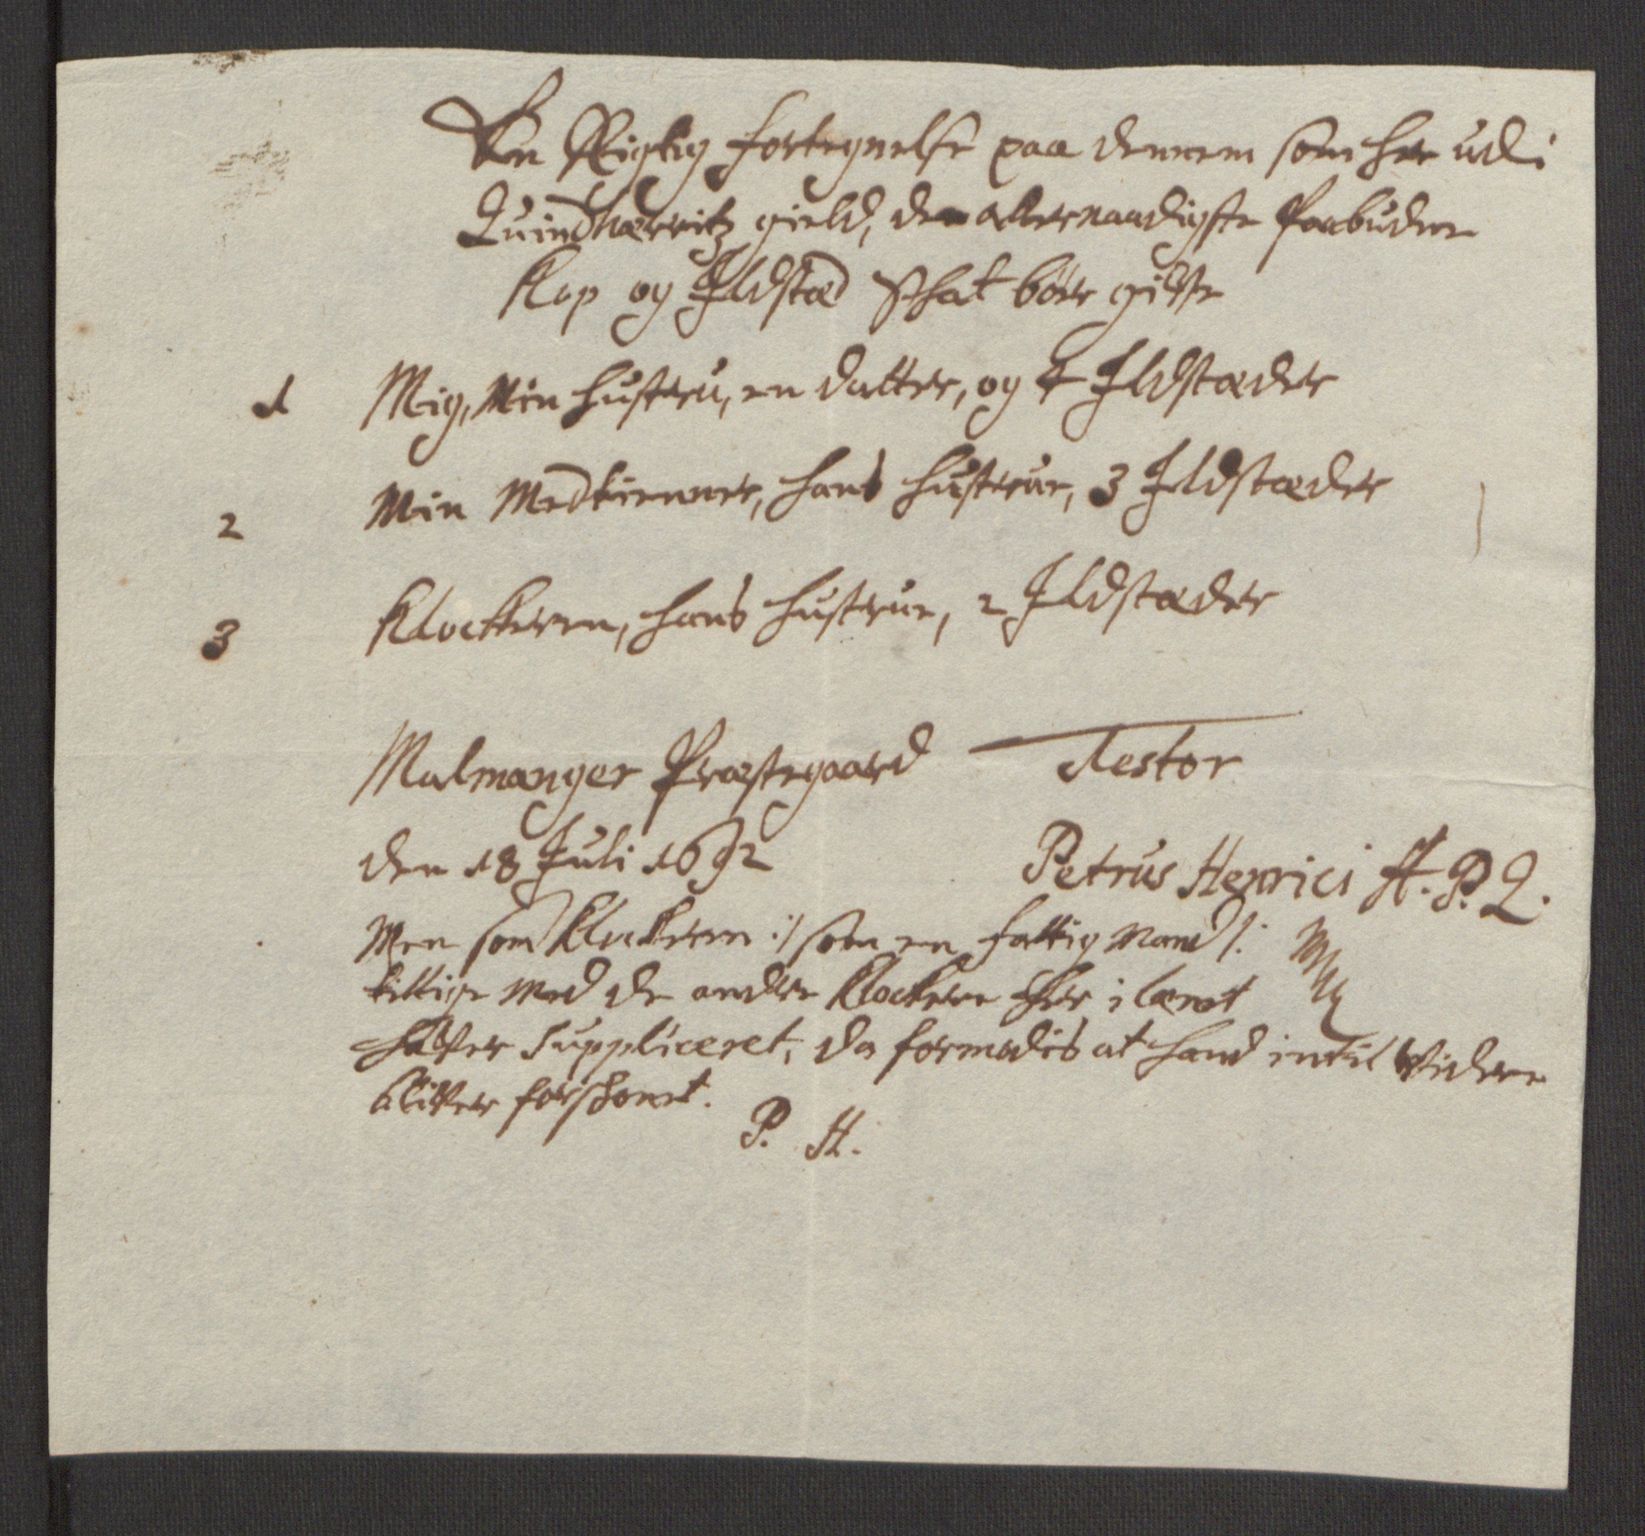 En Rigtig fortegnelse paa dennem som her udi
Quindherritz gield, den allernaadigste Paabudne
Kop og Ildsted Skat bör gifve
1 Mig, Min hustru, en datter, og 4 Ildstæder
2 Min Medtienner, hans hustrue, 3 Ildstæder
3 Klockeren, hans hustrue, 2 Ildstæder
Malmanger Præstegaard Testor
den 18 Juli 1692 Petrus Henrici H. P. Q.
Men som Klockeren :/ som en fattig Mand /:
med de andre Klockere her i lænet
hafver Suppliceret, da formodis at hand intil Videre
blifver forskont.
P. H.